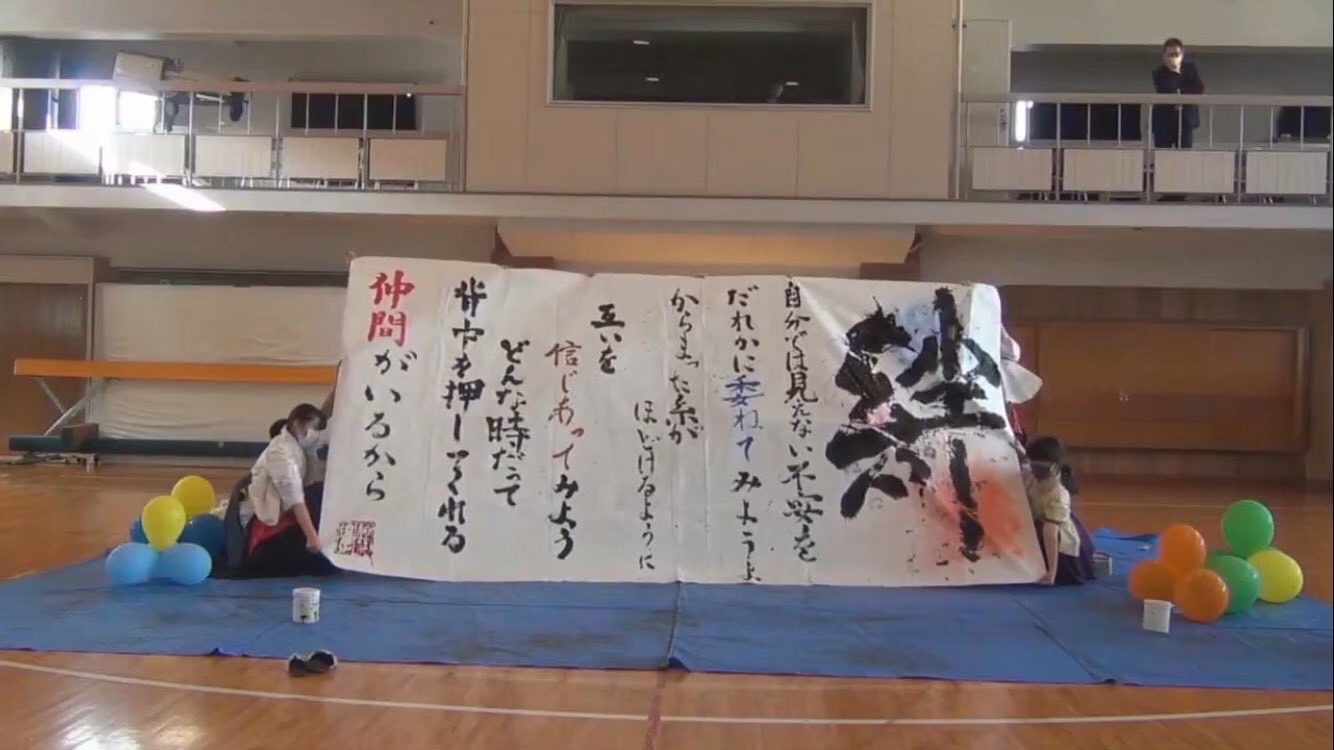 絆
自分では見えない不安を
だれかに委ねてみようよ
からまった糸が
ほどけるように
互いを
信じあってみよう
どんな時だって
背中を押してくれる
仲間がいるから